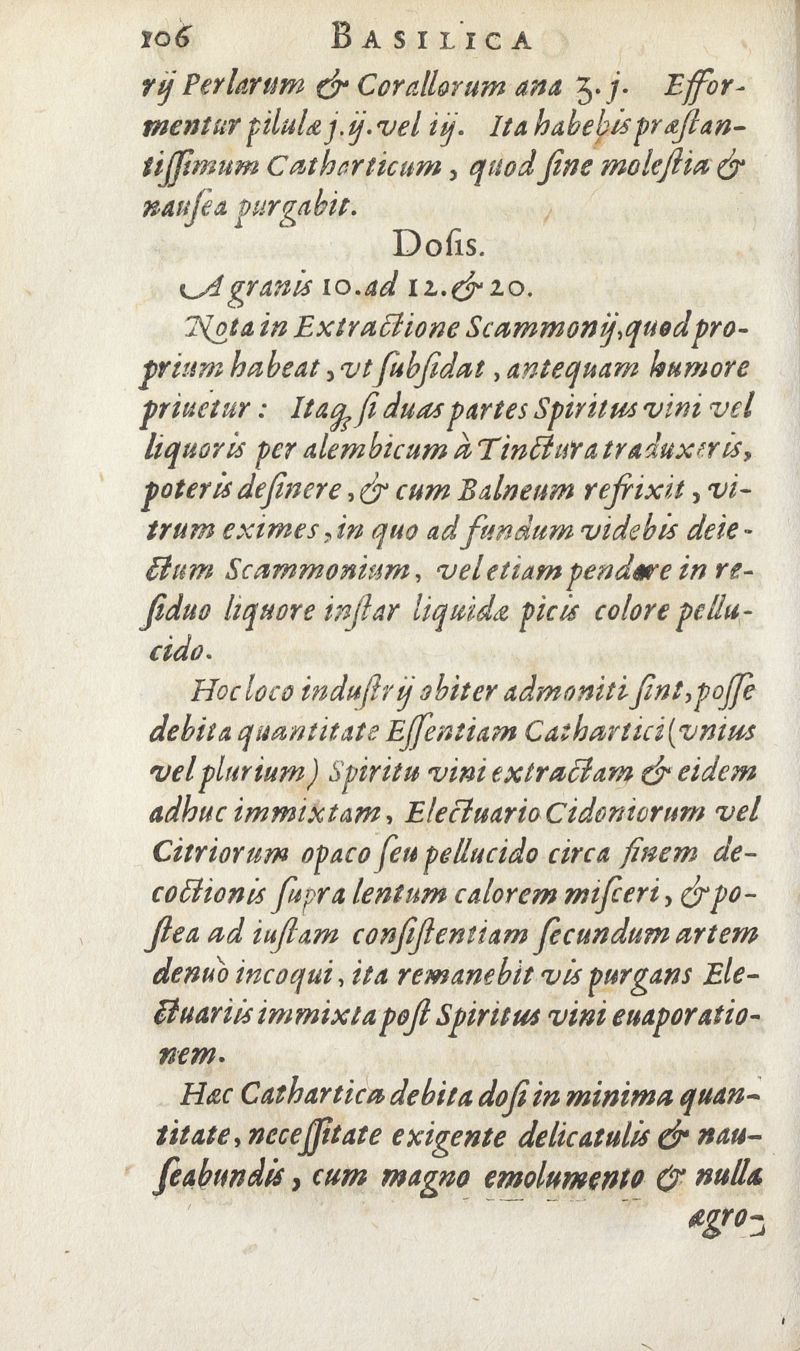 106 BASILICA
rij Perlarum & Corallorum ana ʒ. j. Effor-
mentur pilulæ j. ij. vel iij. Ita habebis præſtan-
tiſſimum Catharticum, quod ſine moleſtia &
nauſea purgabit.
Doſis.
A granis 10. ad 12. & 20.
Nota in Extractione Scammonij, quod pro-
prium habeat, vt ſubſidat, antequam humore
priuetur: Itaq; ſi duas partes Spiritus vini vel
liquoris per alembicum à Tinctura traduxeris,
poteris deſinere, & cum Balneum refrixit, vi-
trum eximes, in quo ad fundum videbis deie-
ctum Scammonium, vel etiam pendere in re-
ſiduo liquore inſtar liquidæ picis colore pellu-
cido.
Hoc loco induſtrij obiter admoniti ſint, poſſe
debita quantitate Eſſentiam Cathartici (vnius
vel plurium) Spiritu vini extractam & eidem
adhuc immixtam, Electuario Cidoniorum vel
Citriorum opaco ſeu pellucido circa finem de-
coctionis ſupra lentum calorem miſceri, & po-
ſtea ad iuſtam conſiſtentiam ſecundum artem
denuò incoqui, ita remanebit vis purgans Ele-
ctuariis immixta poſt Spiritus vini euaporatio-
nem.
Hæc Cathartica debita doſi in minima quan-
titate, neceſſitate exigente delicatulis & nau-
ſeabundis, cum magno emolumento & nulla
ægro-